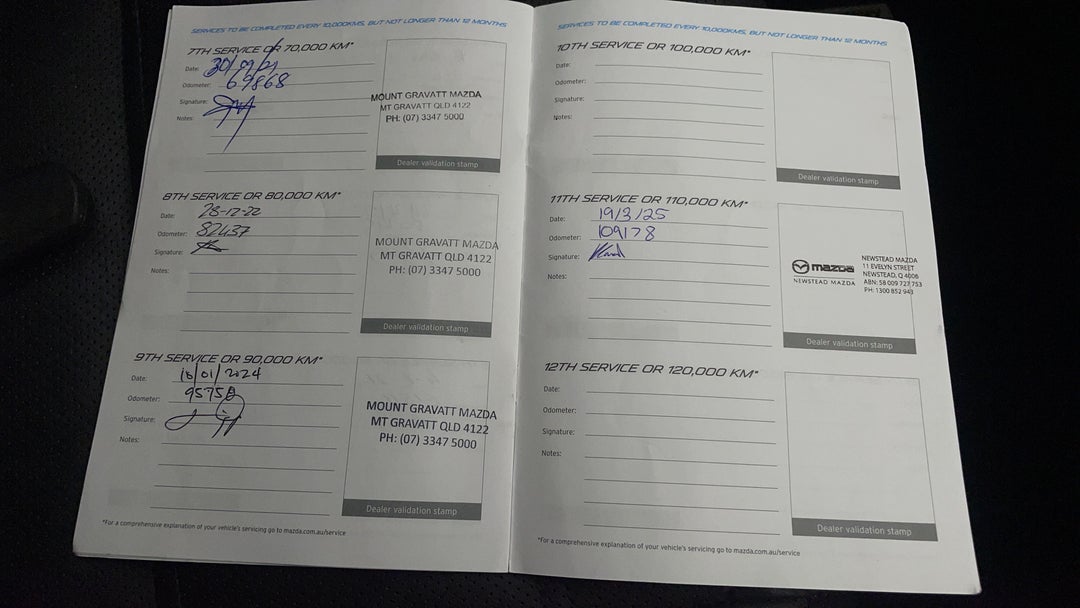 SERVICES TO BE COMPLETED EVERY 10,000KMS, BUT NOT LONGER THAN 12 MONTHS
7TH SERVICE OR 70,000 KM*
Date:
Odometer: 69868
Signature:
Notes:
MOUNT GRAVATT MAZDA
MT GRAVATT QLD 4122
PH: (07) 3347 5000
Dealer validation stamp
8TH SERVICE OR 80,000 KM*
Date: 28-12-22
Odometer: 82437
Signature:
Notes:
MOUNT GRAVATT MAZDA
MT GRAVATT QLD 4122
PH: (07) 3347 5000
Dealer validation stamp
9TH SERVICE OR 90,000 KM*
Date:
Odometer:
Signature:
Notes:
MOUNT GRAVATT MAZDA
MT GRAVATT QLD 4122
PH: (07) 3347 5000
Dealer validation stamp
*For a comprehensive explanation of your vehicle's servicing go to mazda.com.au/service
SERVICES TO BE COMPLETED EVERY 10,000KMS, BUT NOT LONGER THAN 12 MONTHS
10TH SERVICE OR 100,000 KM*
Date:
Odometer:
Signature:
Notes:
Dealer validation stamp
11TH SERVICE OR 110,000 KM*
Date: 19/3/25
Odometer: 109178
Signature:
Notes:
mazda
NEWSTEAD MAZDA
NEWSTEAD MAZDA
11 EVELYN STREET
NEWSTEAD, Q 4006
ABN: 58 009 727 753
PH: 1300 852 943
Dealer validation stamp
12TH SERVICE OR 120,000 KM*
Date:
Odometer:
Signature:
Notes:
Dealer validation stamp
*For a comprehensive explanation of your vehicle's servicing go to mazda.com.au/service